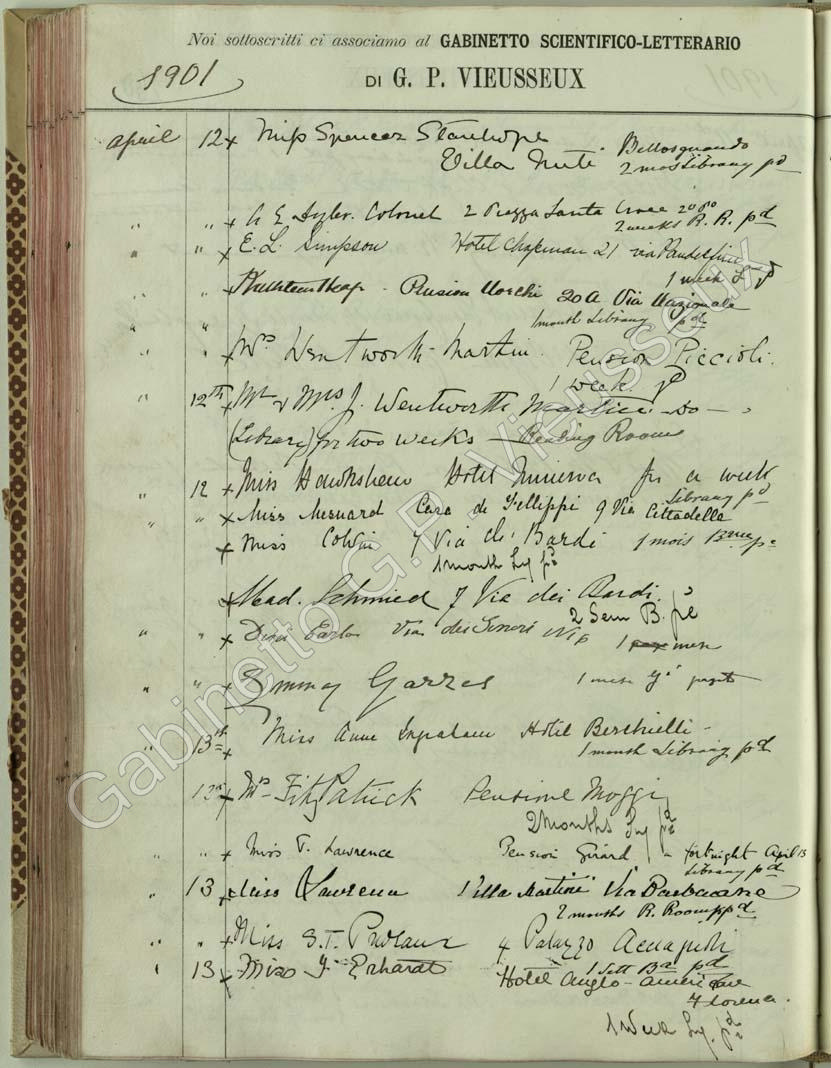 Noi sottoscritti ci associamo al GABINETTO SCIENTIFICO-LETTERARIO
1901
DI G. P. VIEUSSEUX
April 12 x Miss Spencer Stanhope
Villa Nuti Bellosguardo
2 mos Library pd
" " x Colonel 2 Piazza Santa Croce
2 weeks R. R. pd
" x E. L. Simpson Hotel Chapman 21 via Pandolfini
1 week L pd
" x Pension 20 A Via Nazionale
1 month Library pd
" x Mrs Wentworth-Martin. Pension Piccioli.
1 week pd
12th x Mr & Mrs J. Wentworth Martin - Do -
(Library) for two weeks - Reading Room
" 12 x Miss Hawkshaw Hotel Minerva for a week
Library pd
" " x Miss Mesnard Casa de Fillippi 9 Via Cittadella
x Miss Colvin 7 Via di Bardi 1 mois
1 month pd
x Mad. Schmied 7 Via dei Bardi.
2 Sem B. pd
" " x Carlo Via dei
1 mese
" " x Emma 1 mese
" 13th x Miss Anne Ingraham Hotel Berchielli -
1 month Library pd
13th x Mrs FitzPatrick Pensione Moggi
2 Months pd
" " x Miss T. Lawrence Pension Girard a fortnight April 13
Library pd
" 13 x Miss Lawrence Villa Martini Via Barbacane
2 months R. Room pd
" " x Miss S. T. Prideaux 4 Palazzo Acciajoli
1 Sett Ba pd
" 13 x Miss J. Erhardt Hotel Anglo-Américaine
Florence.
1 Week pd
Gabinetto G.P. Vieusseux